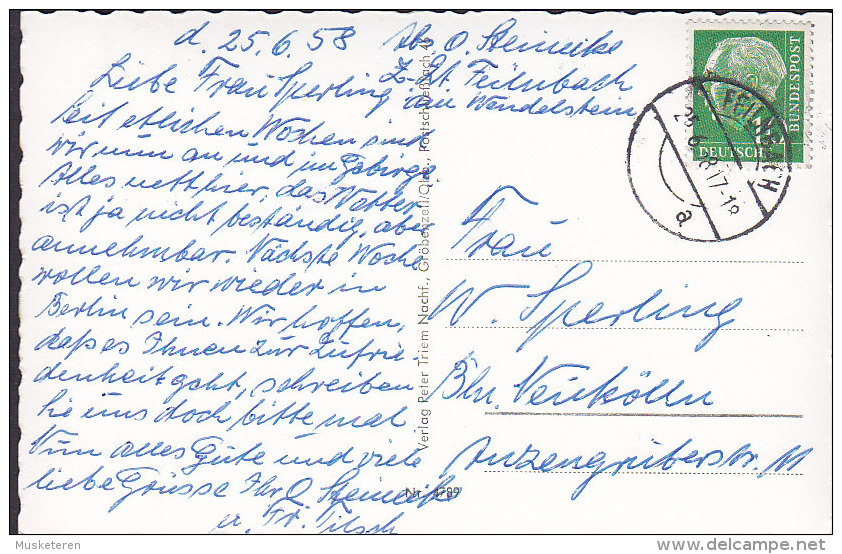 d. 25.6.58
Abs. O. Steineike
z. Zt. Feilnbach
am Wendelstein
Liebe Frau Sperling
Seit etlichen Wochen sind
wir nun an und im Gebirge
Alles nett hier, das Wetter
ist ja nicht beständig, aber
annehmbar. Nächste Woche
wollen wir wieder in
Berlin sein. Wir hoffen,
daß es Ihnen zur Zufrie-
denheit geht, schreiben
Sie uns doch bitte mal
Nun alles Gute und viele
liebe Grüsse Ihr O Steineike
u. Fr.
Verlag Peter Triem Nachf., Gröbenzell/Obb., Postschließfach 48
Nr. 4789
DEUTSCHE BUNDESPOST
FEILNBACH
17-18
a
Frau
W. Sperling
Bln. Neukölln
Anzengruberstr. 11
Musketeren
delcampe.net